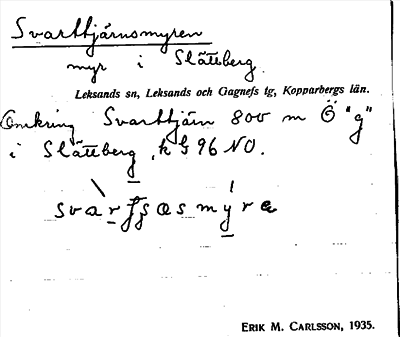 Svarttjärnsmyren
myr i Slättberg
Leksands sn, Leksands och Gagnefs tg, Kopparbergs län.
Omkring Svarttjärn 800 m Ö "g"
i Slättberg, k § 96 NO.
ERIK M. CARLSSON, 1935.